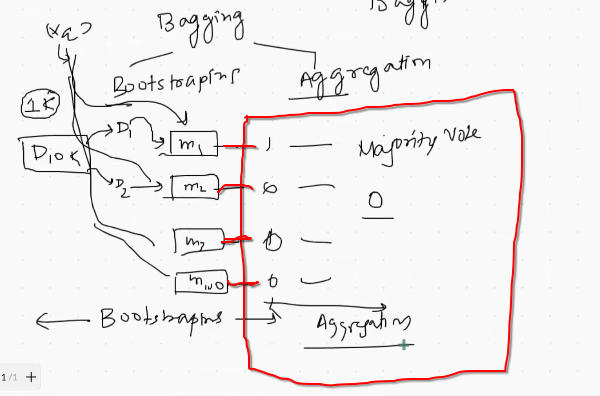 Bagging
Baggi
(xq)
Bootstrapins
Aggregation
1K
D1
m1
1
Majority Vote
D10K
D2
m2
0
0
m3
0
m100
0
Bootstrapins
Aggregation
1/1 +